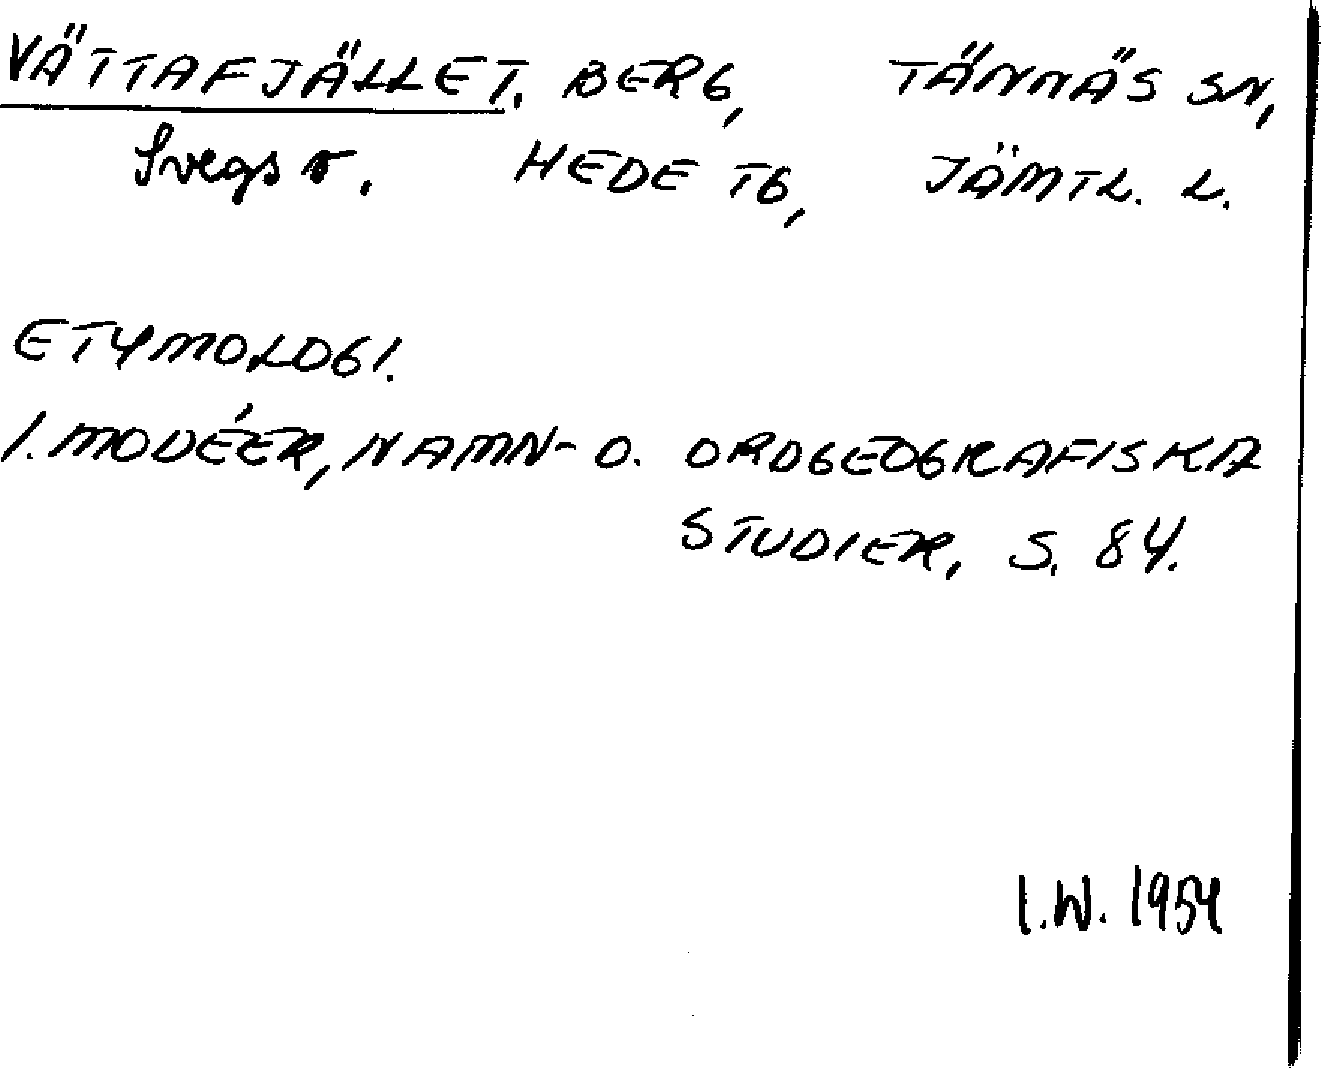 VÄTTAFJÄLLET. BERG, TÄNNÄS SN,
Svegs v. HEDE TG, JÄMTL. L.
ETYMOLOGI.
I. MODÉER, NAMN- O. ORDGEOGRAFISKA
STUDIER, S. 84.
I.W. 1954